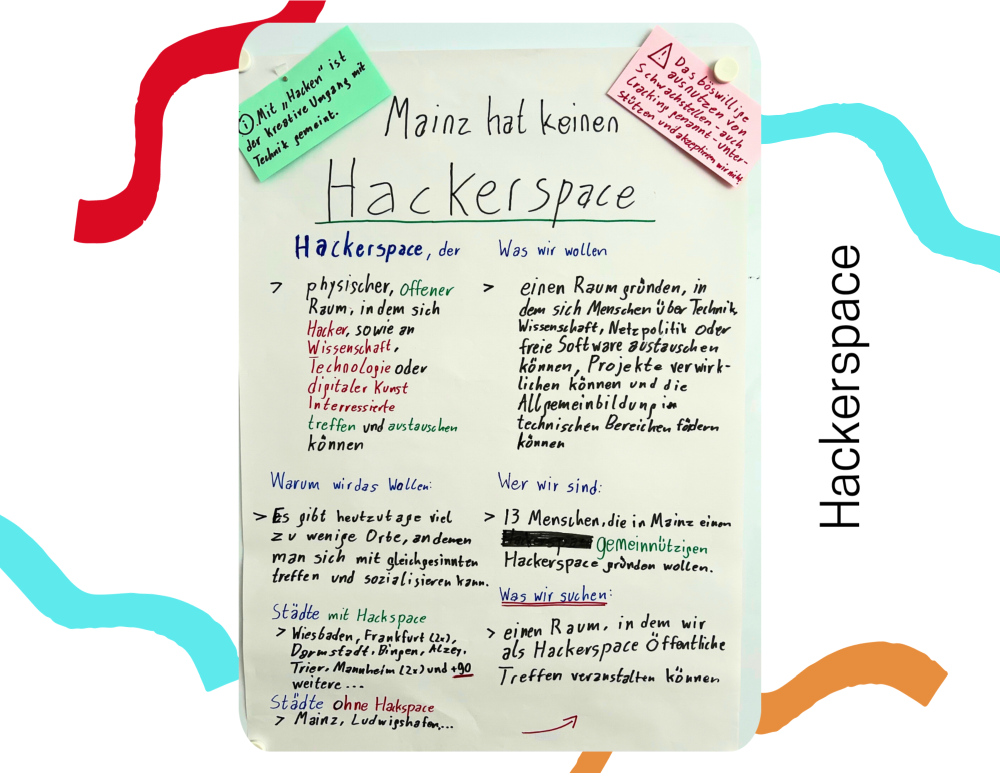 ⓘ Mit „Hacken" ist
der kreative Umgang mit
Technik gemeint.
⚠ Das böswillige
ausnutzen von
Schwachstellen - auch
Cracking genannt - unter-
stützen und akzeptieren wir nicht.
Mainz hat keinen
Hackerspace
Hackerspace, der
> physischer, offener
Raum, in dem sich
Hacker, sowie an
Wissenschaft,
Technologie oder
digitaler Kunst
Interressierte
treffen und austauschen
können
Was wir wollen
> einen Raum gründen, in
dem sich Menschen über Technik,
Wissenschaft, Netzpolitik oder
freie Software austauschen
können, Projekte verwirk-
lichen können und die
Allgemeinbildung in
technischen Bereichen fördern
können
Warum wir das Wollen:
> Es gibt heutzutage viel
zu wenige Orte, an denen
man sich mit gleichgesinnten
treffen und sozialisieren kann.
Städte mit Hackspace
> Wiesbaden, Frankfurt (2x),
Darmstadt, Bingen, Alzey,
Trier, Mannheim (2x) und +90
weitere ...
Städte ohne Hackspace
> Mainz, Ludwigshafen,...
Wer wir sind:
> 13 Menschen, die in Mainz einen
gemeinnützigen
Hackerspace gründen wollen.
Was wir suchen:
> einen Raum, in dem wir
als Hackerspace Öffentliche
Treffen veranstalten können
Hackerspace